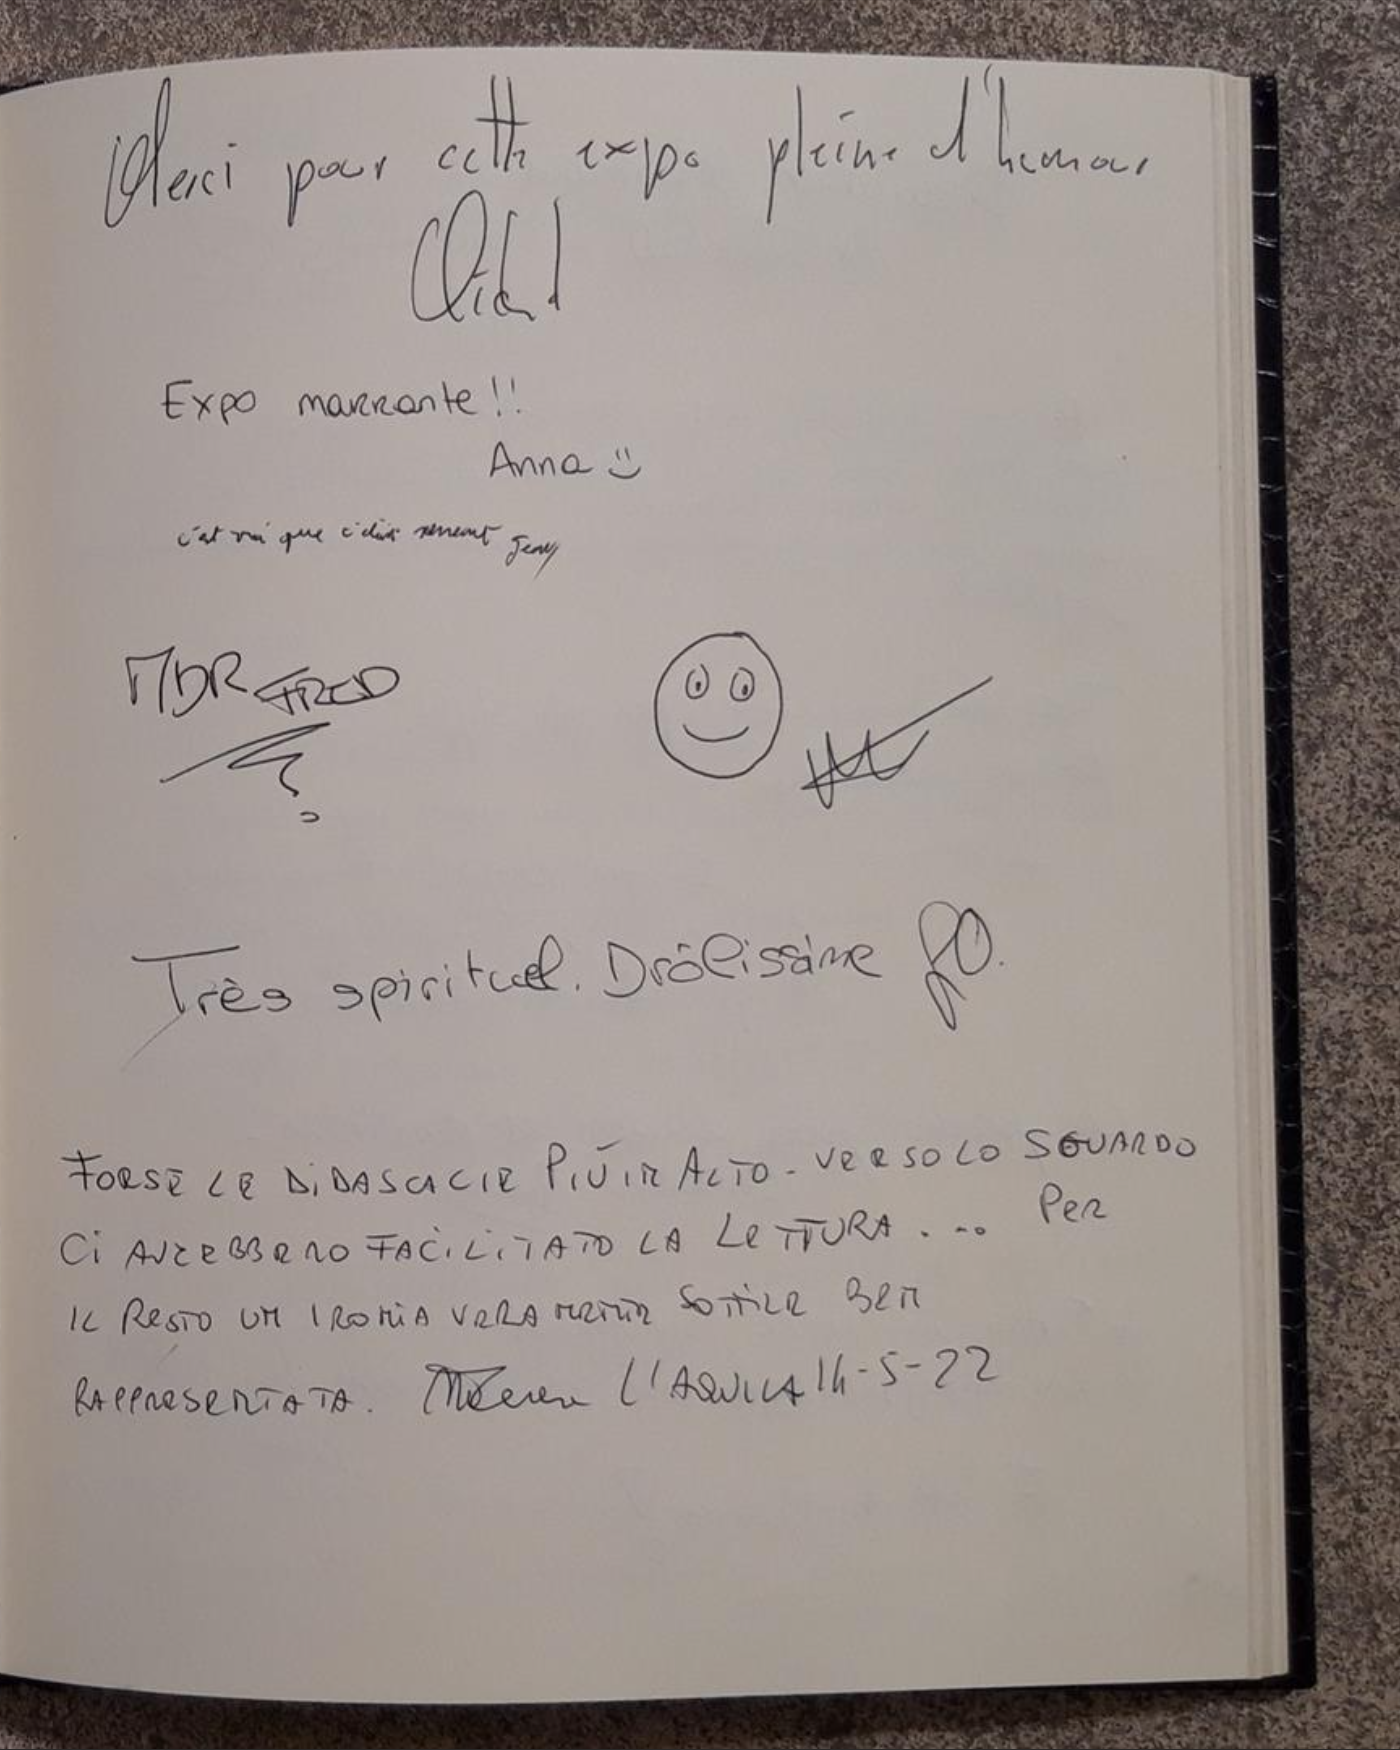 Merci pour cette expo pleine d'humour
Expo marrante !!
Anna
c'est vrai que
MDR FRED
Très spirituel. Drôlissime
FORSE LE DIDASCALIE PIÙ IN ALTO - VERSO LO SGUARDO
CI AVREBBERO FACILITATO LA LETTURA . .. PER
IL RESTO UN IRONIA VERAMENTE SOTTILE BEN
RAPPRESENTATA. L'AQUILA 14-5-22